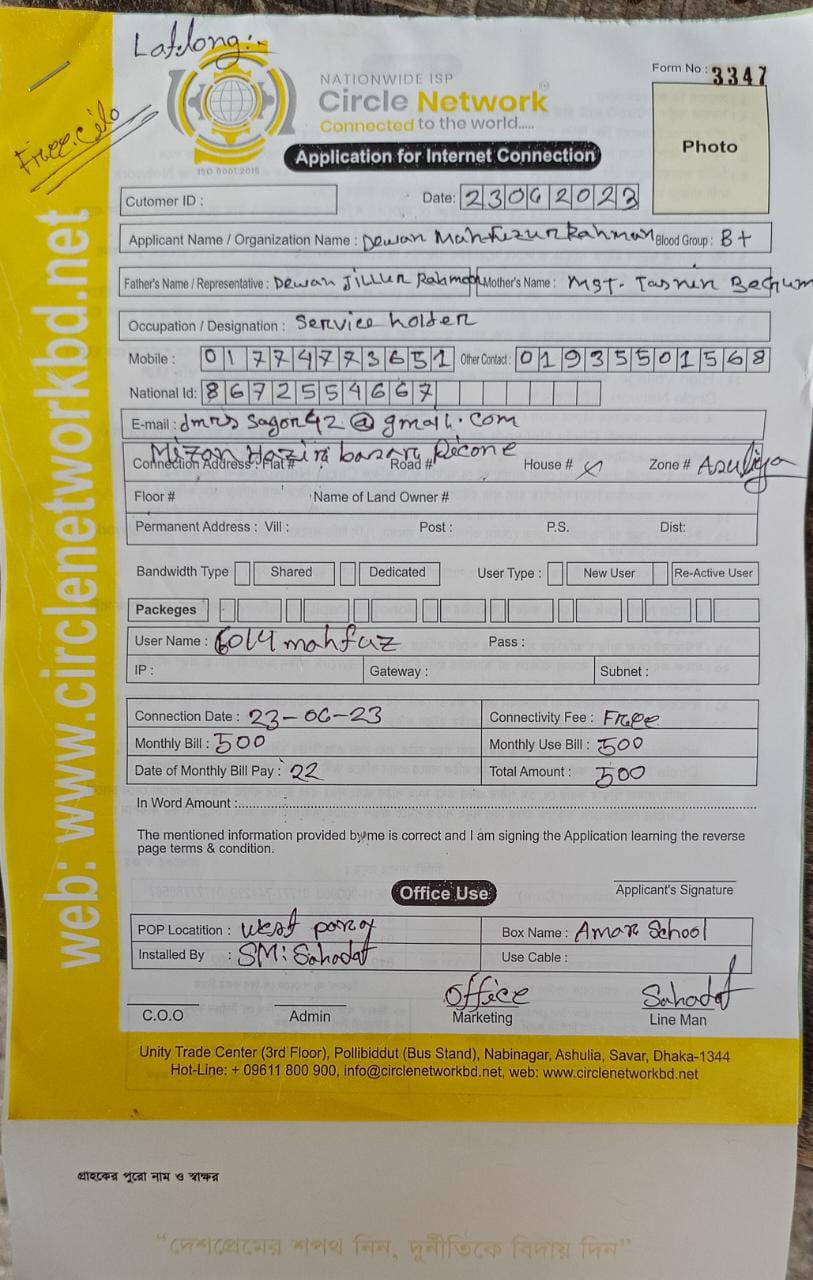 Latlong:-
Free.
NATIONWIDE ISP
Circle Network
Connected to the world.....
ISO 9001:2015
Form No : 3347
Photo
Application for Internet Connection
web: www.circlenetworkbd.net
Cutomer ID :
Date: 23062023
Applicant Name / Organization Name : Dewan Mahfuzur Rahman Blood Group : B+
Father's Name / Representative : Dewan Jillur Rahman Mother's Name : Mst. Tasnin Begum
Occupation / Designation : Service holder
Mobile : 01774773651 Other Contact : 01935501568
National Id: 8672554667
E-mail : dmrssagor42@gmail.com
Mizan Hazir bazar,
Connection Address : Flat # Road # House # Zone # Asuliya
Floor # Name of Land Owner #
Permanent Address : Vill : Post : P.S. Dist:
Bandwidth Type Shared Dedicated User Type : New User Re-Active User
Packeges
User Name : 6014mahfuz Pass :
IP : Gateway : Subnet :
Connection Date : 23-06-23 Connectivity Fee : Free
Monthly Bill : 500 Monthly Use Bill : 500
Date of Monthly Bill Pay : 22 Total Amount : 500
In Word Amount :
The mentioned information provided by me is correct and I am signing the Application learning the reverse
page terms & condition.
Applicant's Signature
Office Use
POP Locatition : West para Box Name : Amar School
Installed By : SM: Sahadat Use Cable :
Office Sahadat
C.O.O Admin Marketing Line Man
Unity Trade Center (3rd Floor), Pollibiddut (Bus Stand), Nabinagar, Ashulia, Savar, Dhaka-1344
Hot-Line: + 09611 800 900, info@circlenetworkbd.net, web: www.circlenetworkbd.net
গ্রাহকের পুরো নাম ও স্বাক্ষর
“দেশপ্রেমের শপথ নিন, দুর্নীতিকে বিদায় দিন”